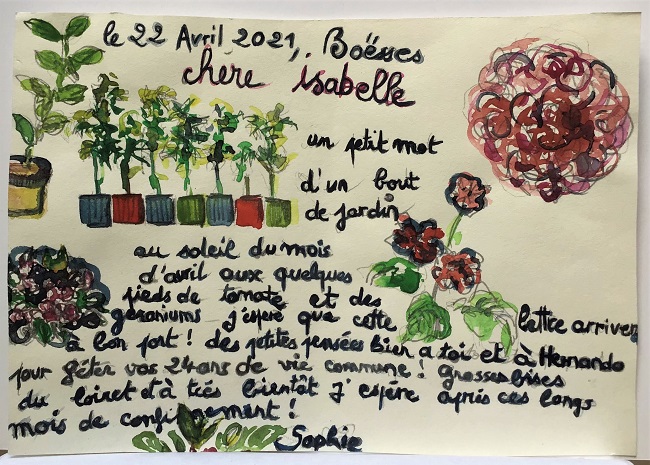 le 22 Avril 2021, Boësses
chère isabelle
un petit mot
d'un bout
de jardin,
au soleil du mois
d'avril aux quelques
pieds de tomate et des
géraniums j'espère que cette lettre arrivera
à bon port ! des petites pensées bien a toi et à Hernando
pour fêter vos 24 ans de vie commune ! grosses bises
du loiret et à très bientôt j'espère après ces longs
mois de confinement !
Sophie